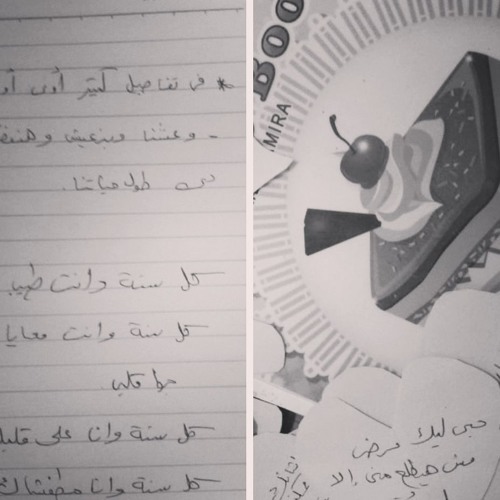 * في تفاصيل كتير أوي أو
- وعشنا وبنعيش وهنف
دى طول حياتنا.
كل سنة وانت طيب
كل سنة وانت معايا
جوا قلبى
كل سنة وانا على قلبك
كل سنة وانا
BOO
MIRA
حبى ليك مرض
مش هيطلع منى إلا